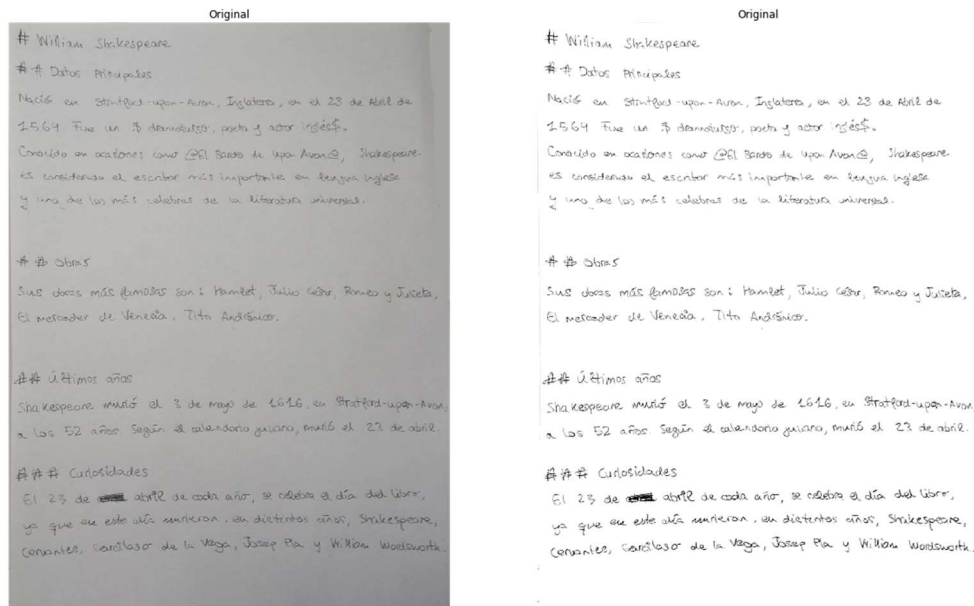 Original
# William Shakespeare
## Datos Principales
Nació en Stratford-upon-Avon, Inglaterra, en el 23 de Abril de
1564 Fue un $ dramaturgo, poeta y actor inglés$.
Conocido en ocasiones como @El Bardo de upon Avon@, Shakespeare
es considerado el escritor más importante en lengua inglesa
y uno de los más celebres de la literatura universal.
## Obras
Sus obras más famosas son: Hamlet, Julio César, Romeo y Julieta,
El mercader de Venecia, Tito Andrónico.
## Últimos años
Shakespeare murió el 3 de mayo de 1616, en Stratford-upon-Avon,
a los 52 años. Según el calendario juliano, murió el 23 de abril.
### Curiosidades
El 23 de abril de cada año, se celebra el día del libro,
ya que en este día murieron, en distintos años, Shakespeare,
Cervantes, Garcilaso de la Vega, Josep Pla y William Wordsworth.
Original
# William Shakespeare
## Datos Principales
Nació en Stratford-upon-Avon, Inglaterra, en el 23 de Abril de
1564 Fue un $ dramaturgo, poeta y actor inglés$.
Conocido en ocasiones como @El Bardo de upon Avon@, Shakespeare
es considerado el escritor más importante en lengua inglesa
y uno de los más celebres de la literatura universal.
## Obras
Sus obras más famosas son: Hamlet, Julio César, Romeo y Julieta,
El mercader de Venecia, Tito Andrónico.
## Últimos años
Shakespeare murió el 3 de mayo de 1616, en Stratford-upon-Avon,
a los 52 años. Según el calendario juliano, murió el 23 de abril.
### Curiosidades
El 23 de abril de cada año, se celebra el día del libro,
ya que en este día murieron, en distintos años, Shakespeare,
Cervantes, Garcilaso de la Vega, Josep Pla y William Wordsworth.